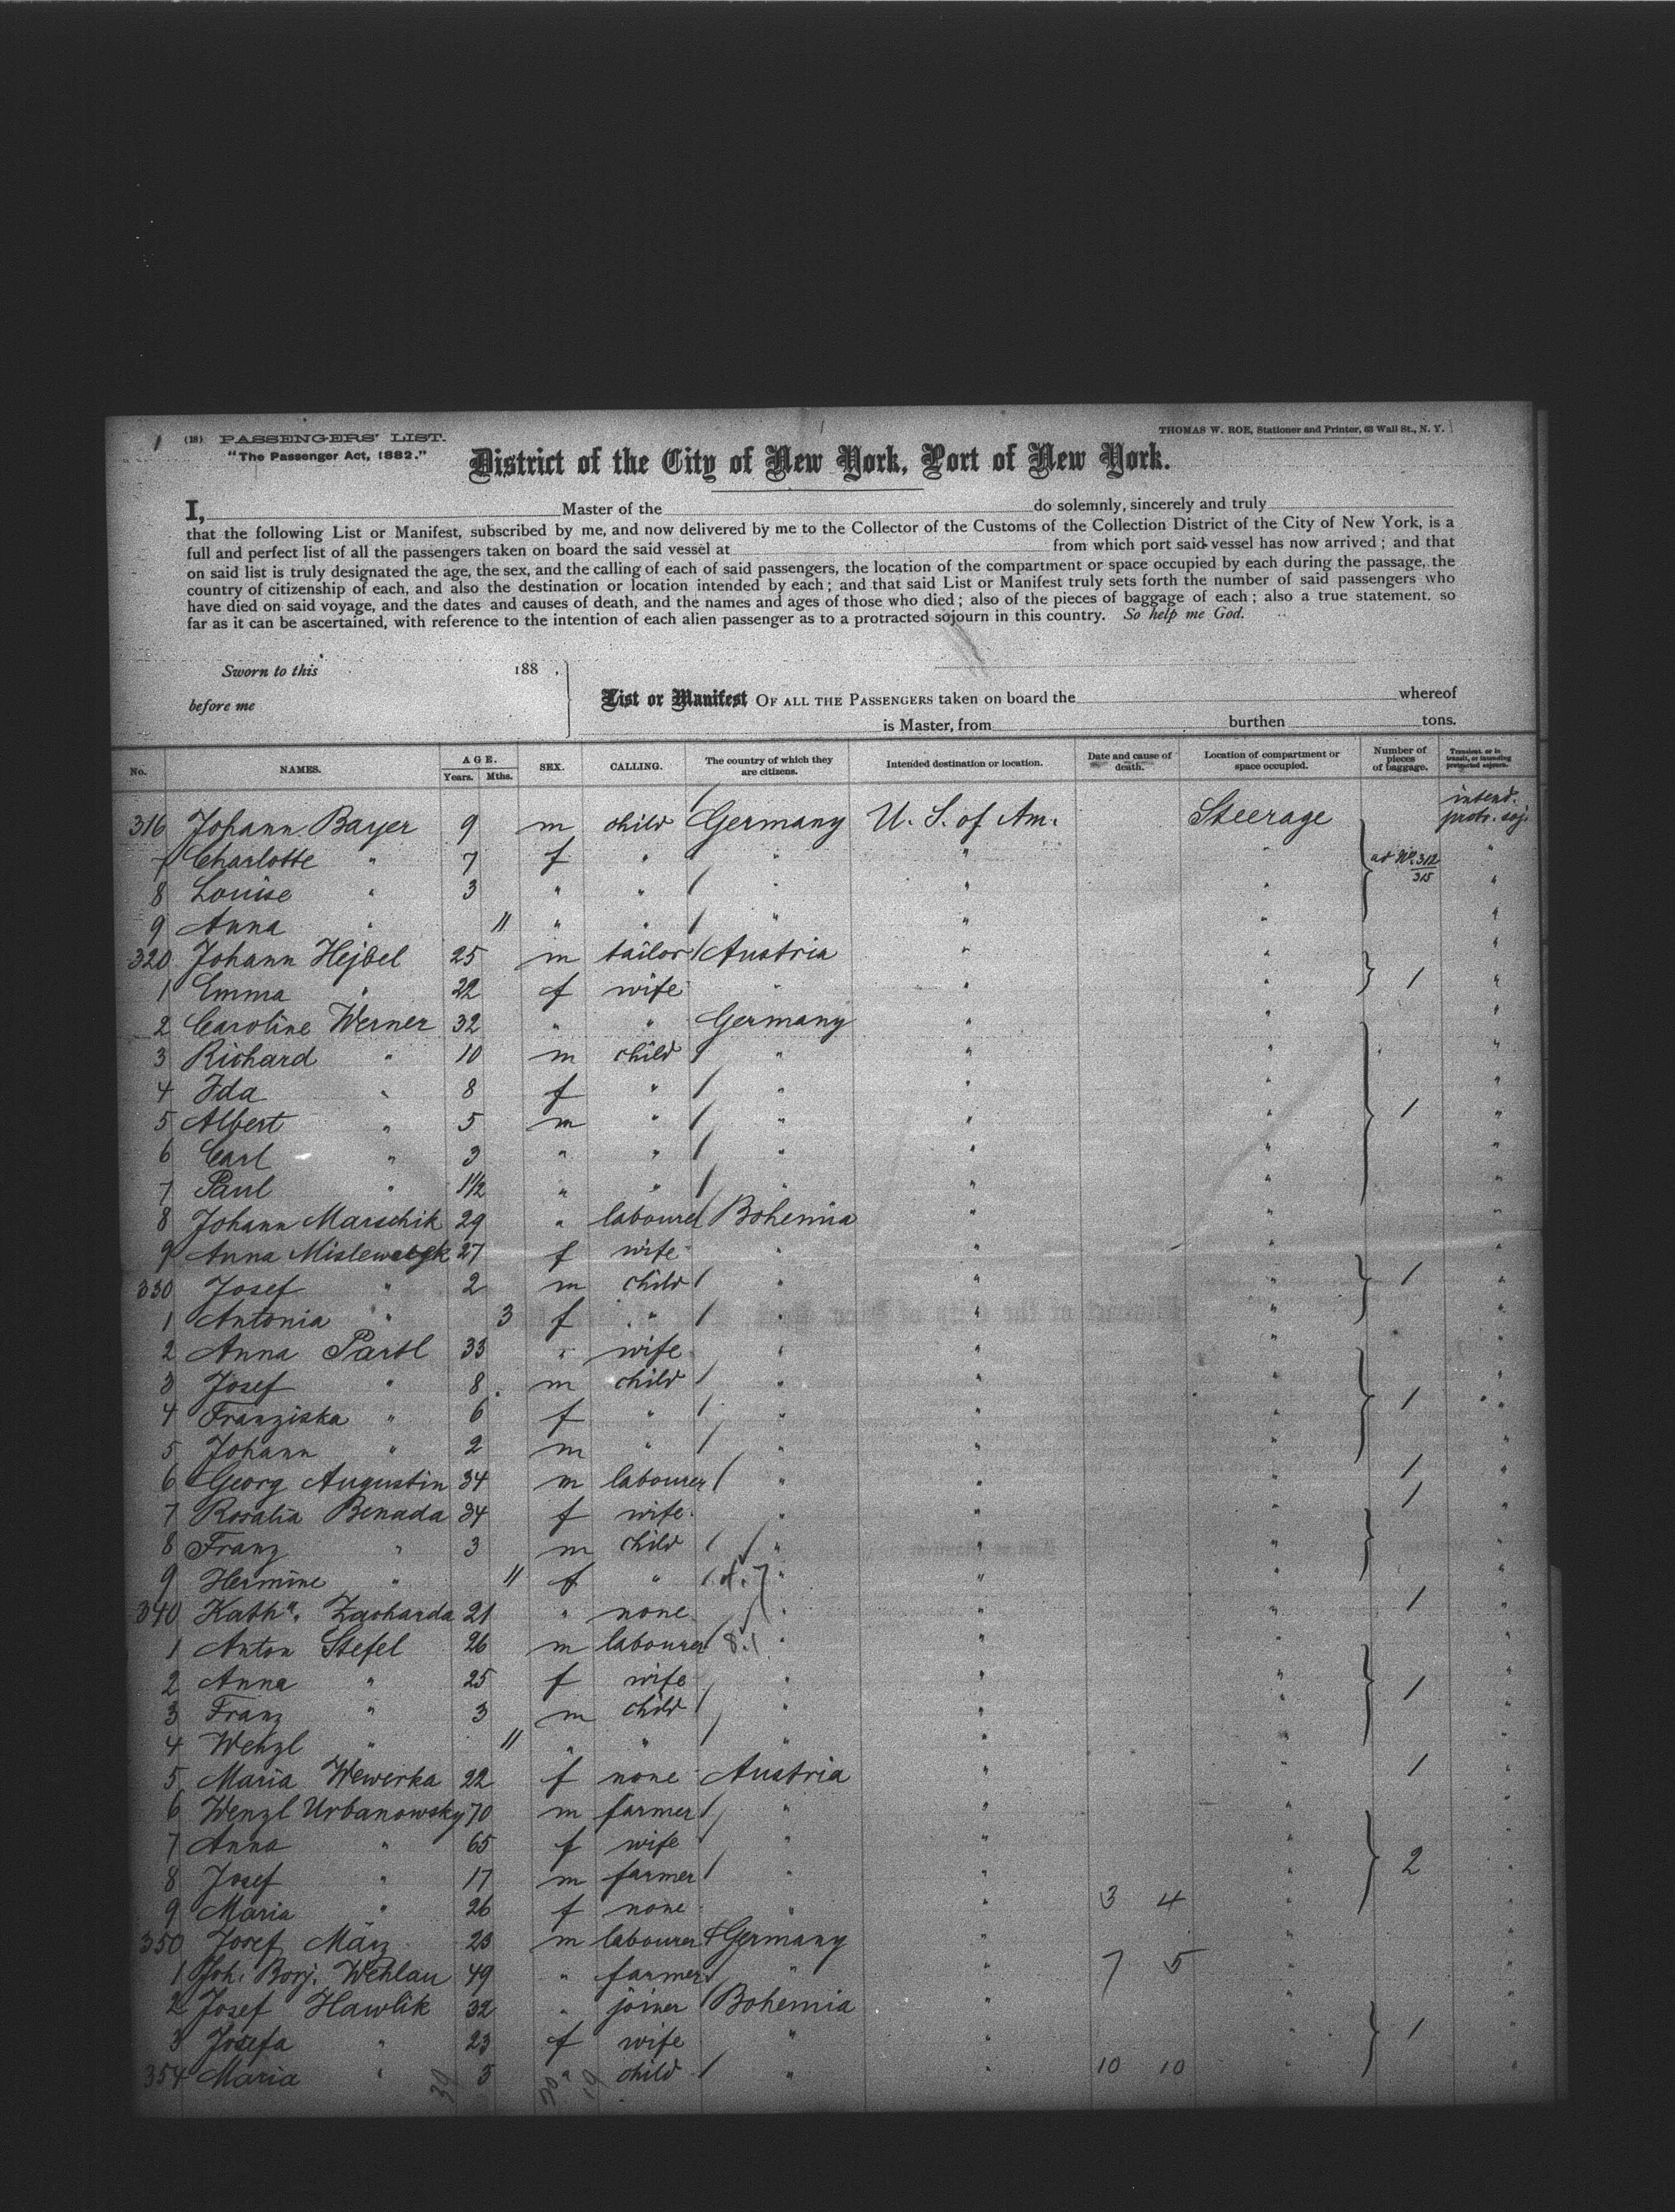 1 (18) PASSENGERS' LIST. THOMAS W. ROE, Stationer and Printer, 68 Wall St., N. Y.
"The Passenger Act, 1882."
District of the City of New York, Port of New York.
I, Master of the do solemnly, sincerely and truly
that the following List or Manifest, subscribed by me, and now delivered by me to the Collector of the Customs of the Collection District of the City of New York, is a
full and perfect list of all the passengers taken on board the said vessel at from which port said vessel has now arrived ; and that
on said list is truly designated the age, the sex, and the calling of each of said passengers, the location of the compartment or space occupied by each during the passage, the
country of citizenship of each, and also the destination or location intended by each ; and that said List or Manifest truly sets forth the number of said passengers who
have died on said voyage, and the dates and causes of death, and the names and ages of those who died ; also of the pieces of baggage of each ; also a true statement, so
far as it can be ascertained, with reference to the intention of each alien passenger as to a protracted sojourn in this country. So help me God.
Sworn to this 188 .
before me
List or Manifest OF ALL THE PASSENGERS taken on board the whereof
is Master, from burthen tons.
No. NAMES. AGE. Years. Mths. SEX. CALLING. The country of which they are citizens. Intended destination or location. Date and cause of death. Location of compartment or space occupied. Number of pieces of baggage. Transient, or in transit, or intending protracted sojourn.
316 Johann Bayer 9 m child Germany U. S. of Am. Steerage intend. protr. soj.
7 Charlotte " 7 f " " " " ad No. 312/315 "
8 Louise " 3 " " " " " "
9 Anna " 11 " " " " " "
320 Johann Hejbel 25 m tailor Austria " " "
1 Emma " 22 f wife " " " 1 "
2 Caroline Werner 32 " " Germany " " "
3 Richard " 10 m child " " " "
4 Ida " 8 f " " " " "
5 Albert " 5 m " " " " 1 "
6 Carl " 3 " " " " " "
7 Paul " 1 1/2 " " " " " "
8 Johann Marschik 29 " labourer Bohemia " " "
9 Anna 27 f wife " " " "
330 Josef " 2 m child " " " 1 "
1 Antonia " 3 f " " " " "
2 Anna Partl 33 " wife " " " "
3 Josef " 8 m child " " " "
4 Franziska " 6 f " " " " 1 "
5 Johann " 2 m " " " " "
6 Georg Augustin 34 m labourer " " " 1 "
7 Rosalia Benada 34 f wife " " " 1 "
8 Franz " 3 m child " " "
9 Hermine " 11 f " " " "
340 Katha. Zacharda 21 " none " " " 1 "
1 Anton Stefel 26 m labourer 8.1 " " " "
2 Anna " 25 f wife " " " 1 "
3 Franz " 3 m child " " " "
4 Wenzl " 11 " " " " "
5 Maria Wewerka 22 f none Austria " " 1 "
6 Wenzl Urbanowsky 70 m farmer " " " "
7 Anna " 65 f wife " " " "
8 Josef " 17 m farmer " " " 2 "
9 Maria " 26 f none " " 3 4 " "
350 Josef März 23 m labourer Germany " " "
1 Joh. Wehlau 49 " farmer " " 7 5 " "
2 Josef Hawlik 32 " joiner Bohemia " " "
3 Josefa " 23 f wife " " " 1 "
354 Maria " 3 " child " " 10 10 " "